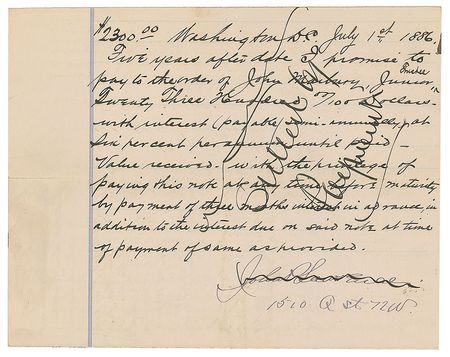 $2300.00 Washington D.C. July 1st 1886.
Five years after date I promise to
pay to the order of John Marbury, Junior, Trustee
Twenty Three Hundred 00/100 Dollars—
with interest (payable) semi-annually, at
six per cent per annum until paid—
Value received— with the privilege of
paying this note at any time before maturity
by payment of three months interest in advance, in
addition to the interest due on said note at time
of payment of same as provided.
John
1510 Q st. N.W.